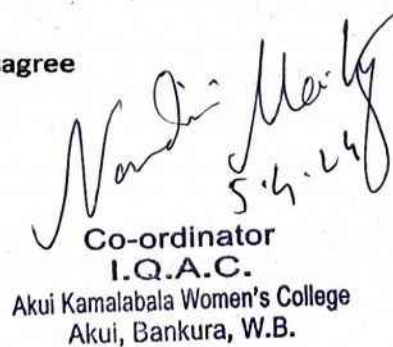 agree
Nandini Maity
5.4.24
Co-ordinator
I.Q.A.C.
Akui Kamalabala Women's College
Akui, Bankura, W.B.